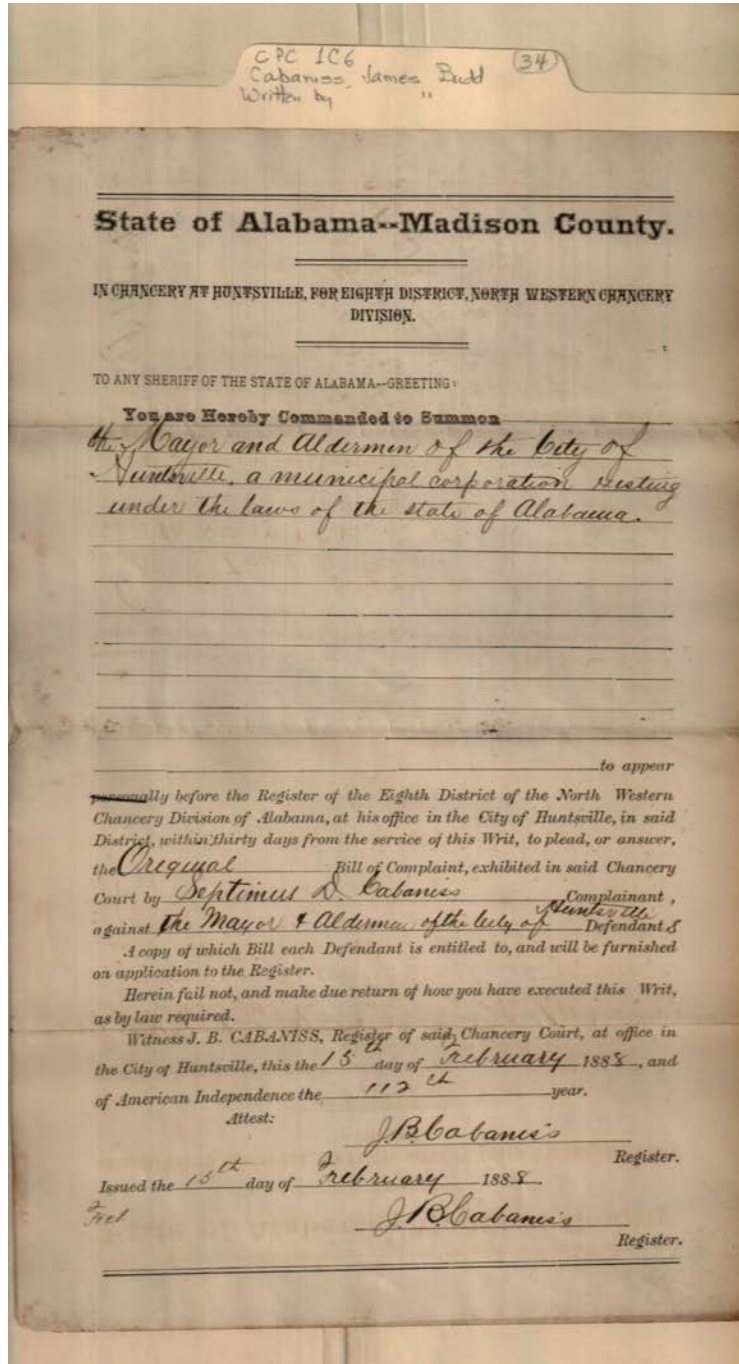 CPC 1C6 (34)
Cabaniss, James Budd
Written by "
State of Alabama--Madison County.
IN CHANCERY AT HUNTSVILLE, FOR EIGHTH DISTRICT, NORTH WESTERN CHANCERY
DIVISION.
TO ANY SHERIFF OF THE STATE OF ALABAMA--GREETING:
You are Hereby Commanded to Summon
the Mayor and Aldermen of the City of
Huntsville, a municipal corporation existing
under the laws of the state of Alabama.
to appear
personally before the Register of the Eighth District of the North Western
Chancery Division of Alabama, at his office in the City of Huntsville, in said
District, within thirty days from the service of this Writ, to plead, or answer,
the Original Bill of Complaint, exhibited in said Chancery
Court by Septimus D. Cabaniss Complainant,
against the Mayor & Aldermen of the City of Huntsville Defendants
A copy of which Bill each Defendant is entitled to, and will be furnished
on application to the Register.
Herein fail not, and make due return of how you have executed this Writ,
as by law required.
Witness J. B. CABANISS, Register of said Chancery Court, at office in
the City of Huntsville, this the 15th day of February 1888, and
of American Independence the 112th year.
Attest:
J.B. Cabaniss
Register.
Issued the 15th day of February 1888
J.B. Cabaniss
Register.